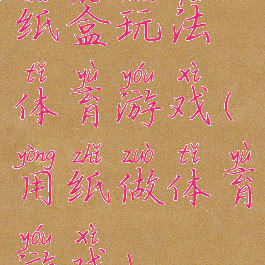 纸盒玩法
tǐ yù yóu xì
体育游戏(
yòng zhǐ zuò tǐ yù
用纸做体育
yóu xì
游戏)